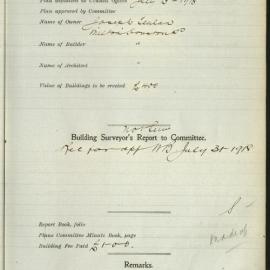 Plan submitted to Council Office July 5 - 1918
Plan approved by Committee "
Name of Owner Joseph
Name of Builder "
Name of Architect "
Value of Buildings to be erected £400
Building Surveyor's Report to Committee.
Rec for app July 31 1918
Report Book, folio
Plans Committee Minute Book, page
Building Fee Paid £1-0-0.
Remarks.